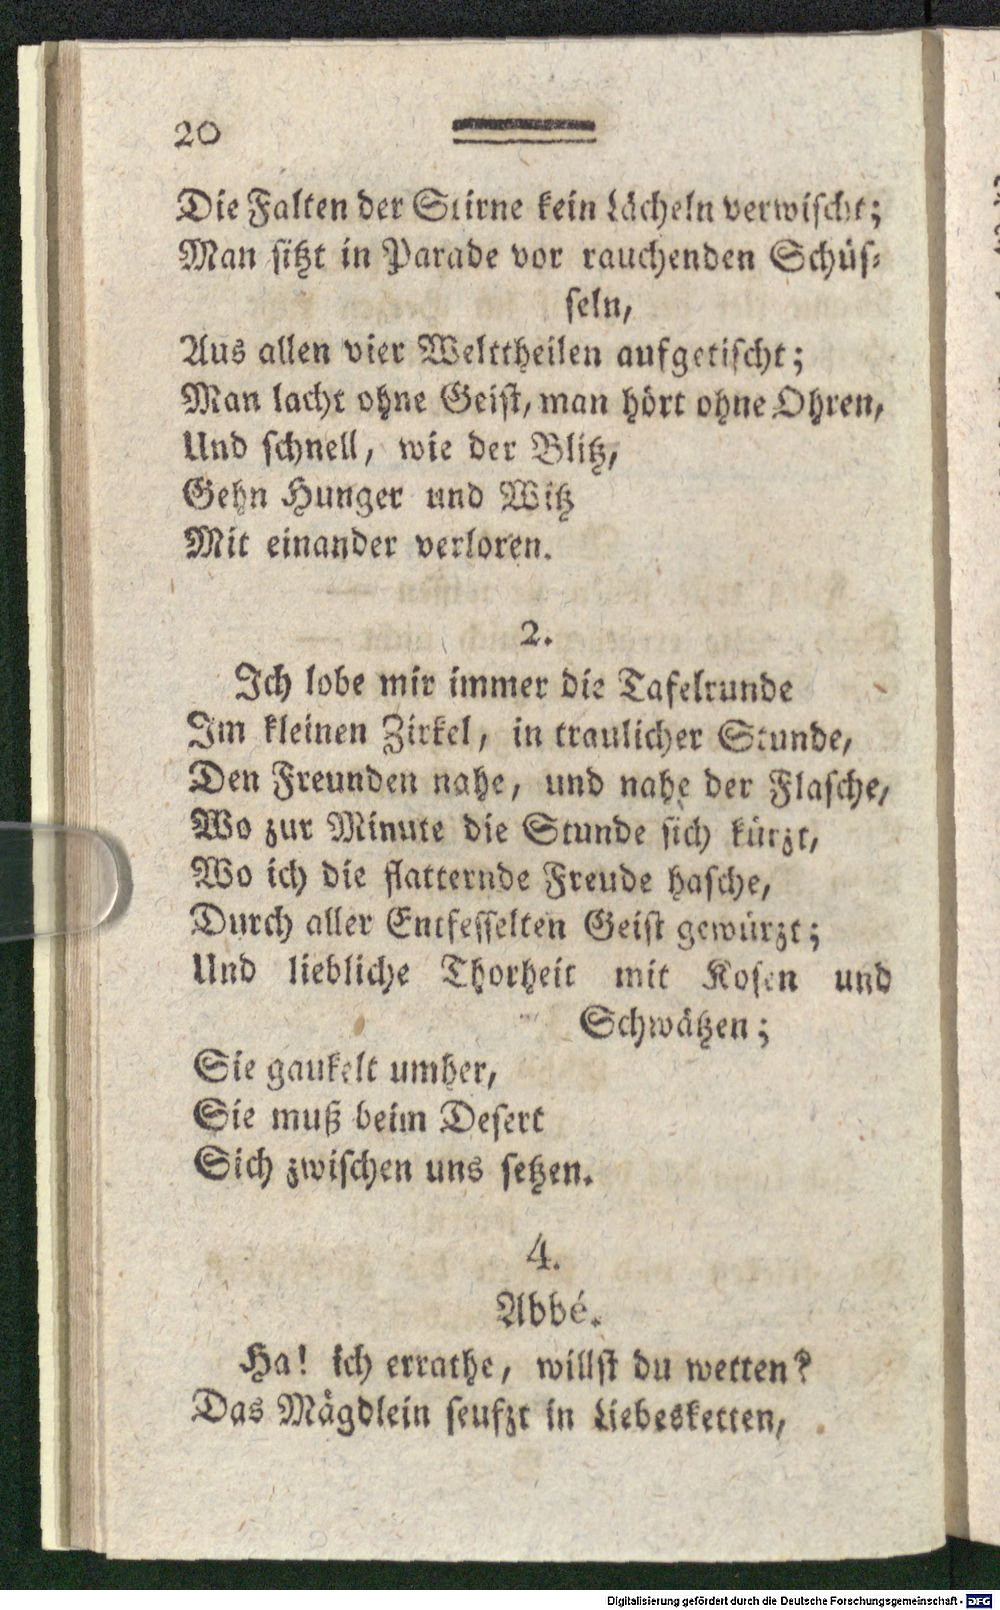 20
Die Falten der Stirne kein Lächeln verwischt;
Man sitzt in Parade vor rauchenden Schüs-
seln,
Aus allen vier Welttheilen aufgetischt;
Man lacht ohne Geist, man hört ohne Ohren,
Und schnell, wie der Blitz,
Gehn Hunger und Witz
Mit einander verloren.
2.
Ich lobe mir immer die Tafelrunde
Im kleinen Zirkel, in traulicher Stunde,
Den Freunden nahe, und nahe der Flasche,
Wo zur Minute die Stunde sich kürzt,
Wo ich die flatternde Freude hasche,
Durch aller Entfesselten Geist gewürzt;
Und liebliche Thorheit mit Kosen und
Schwätzen;
Sie gaukelt umher,
Sie muß beim Desert
Sich zwischen uns setzen.
4.
Abbé.
Ha! ich errathe, willst du wetten?
Das Mägdlein seufzt in Liebesketten,
Digitalisierung gefördert durch die Deutsche Forschungsgemeinschaft - DFG